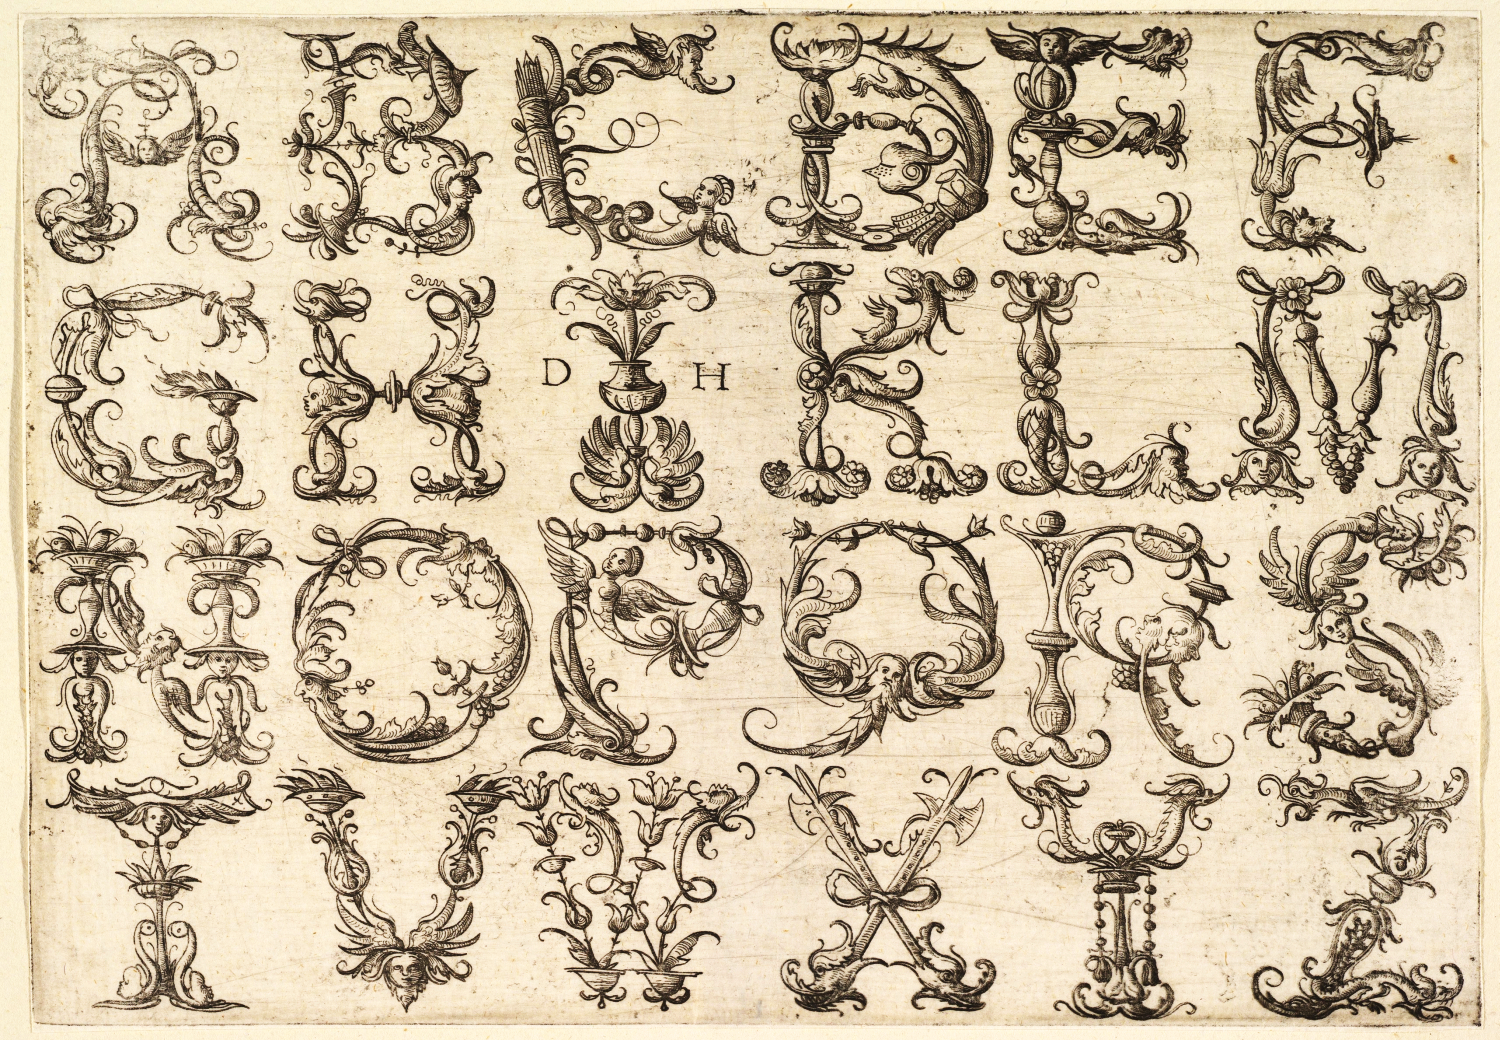 A B C D E F
G H I K L M
D H
N O P Q R S
T V W X Y Z